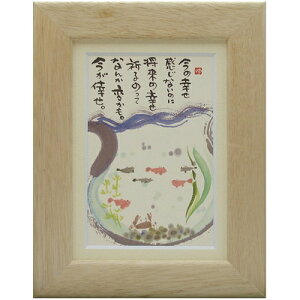 今の幸せ
感じないのに
将来の幸せ
祈るのって
なんか変かも。
今が幸せ。